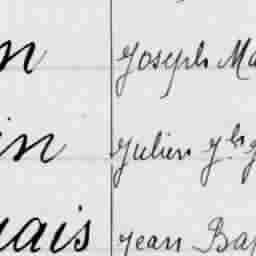 n Joseph Ma
in Julien
uais Jean Bap